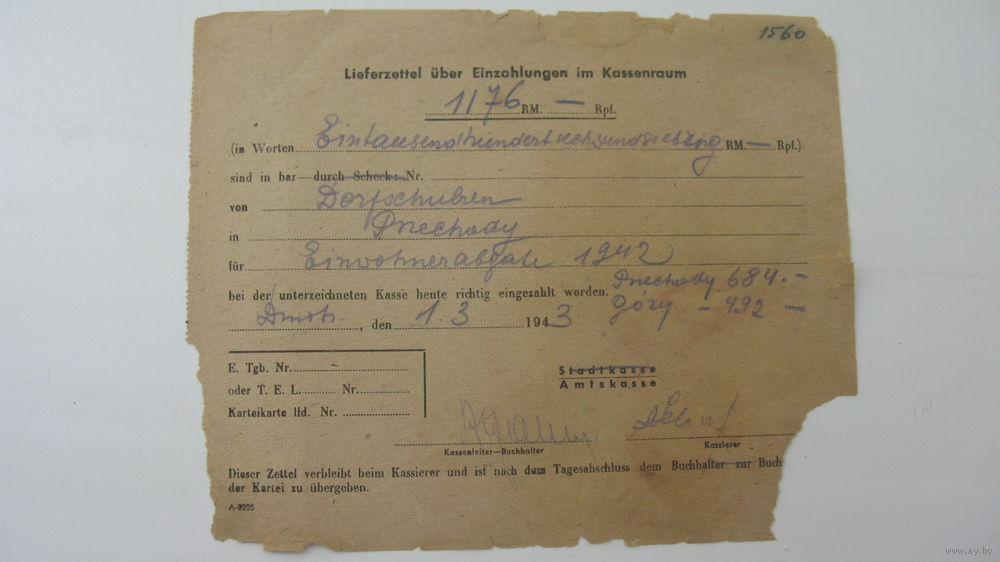 1560
Lieferzettel über Einzahlungen im Kassenraum
1176 RM. — Rpf.
(in Worten Eintausendhundertsechsundsiebzig RM. — Rpf.)
sind in bar — durch Scheck: Nr.
von Dorfschulzen
in Pnechody
für Einwohnerabgabe 1942
Pnechody 684.-
bei der unterzeichneten Kasse heute richtig eingezahlt worden.
Gory - 492 —
, den 1.3 1943
E. Tgb. Nr.
Stadtkasse
oder T. E. L. Nr.
Amtskasse
Karteikarte lfd. Nr.
Kassenleiter—Buchhalter
Kassierer
Dieser Zettel verbleibt beim Kassierer und ist nach dem Tagesabschluss dem Buchhalter zur Buch
der Kartei zu übergeben.
A-0205
www.ay.by